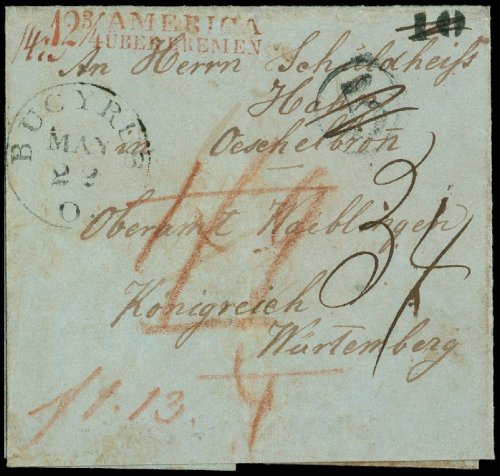 12 3/4 AMERICA
ÜBER BREMEN
10
An Herrn Schuldheiß
in
Oeschelbron
Oberamt Waiblingen
Königreich
Würtemberg
BUCYRUS
MAY
22
O.
34
f1.13.